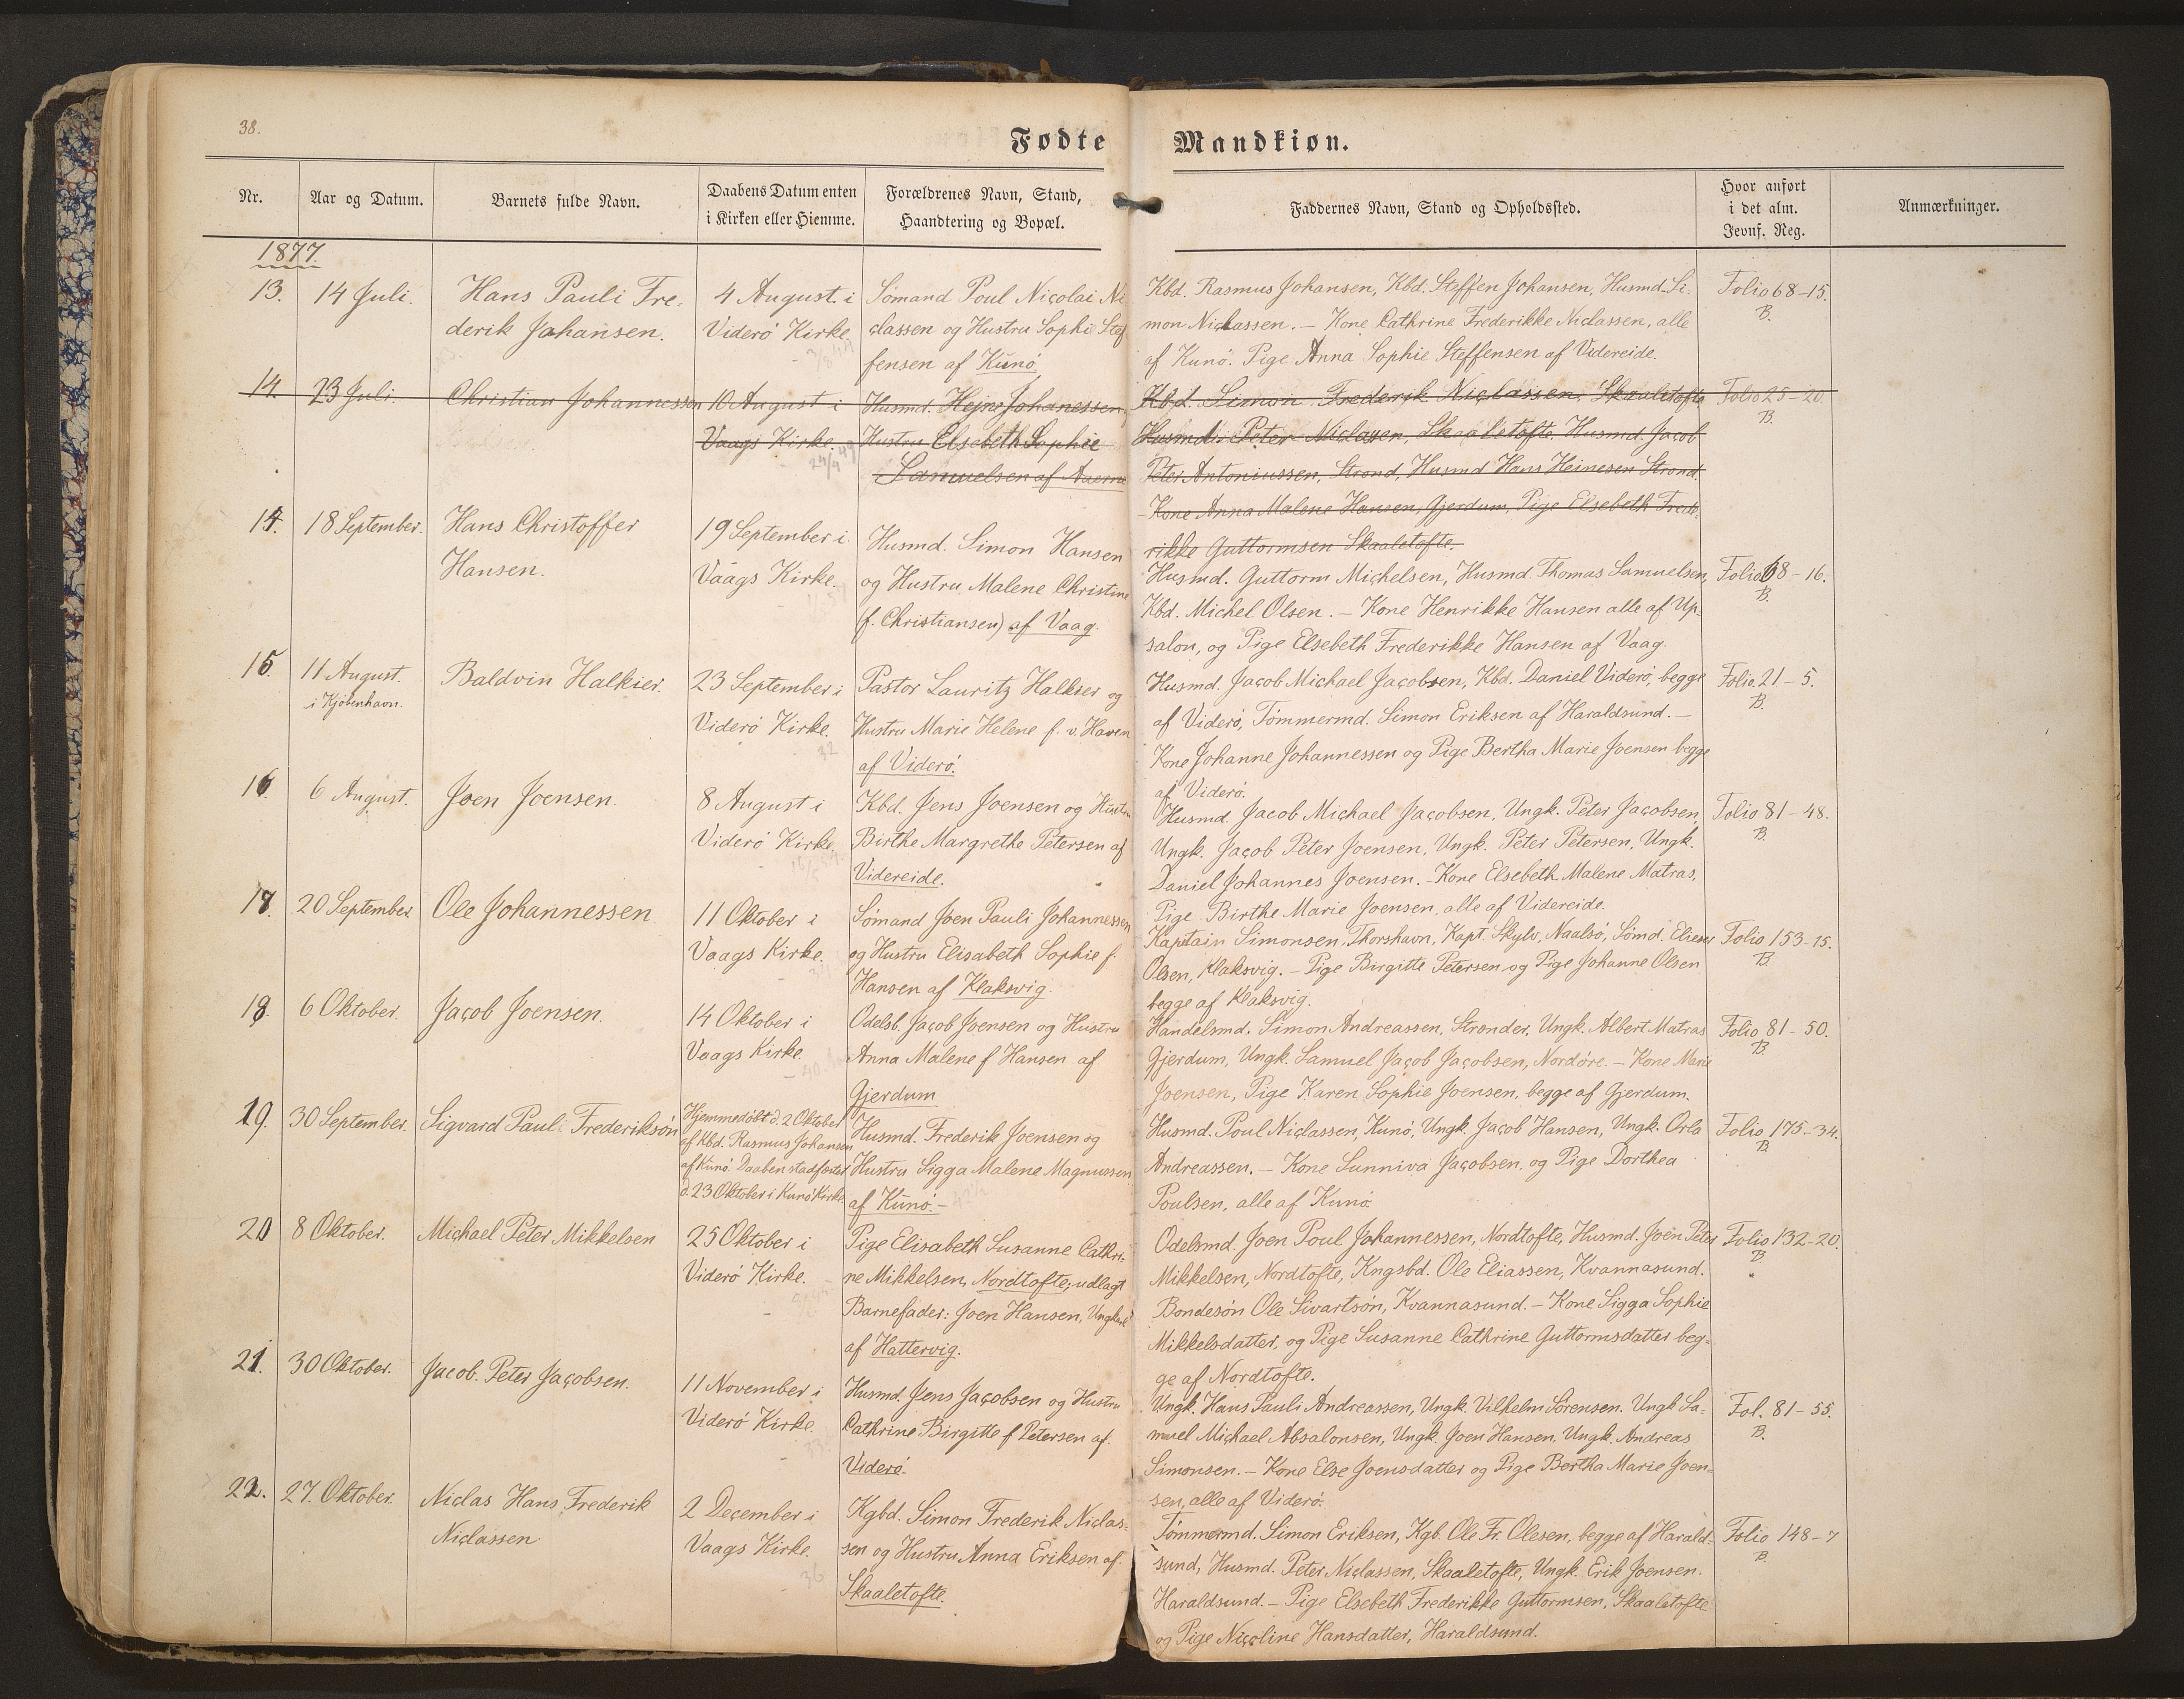 38.
Fødte Mandkiøn.
Nr.
Aar og Datum.
Barnets fulde Navn.
Daabens Datum enten
i Kirken eller Hiemme.
Forældrenes Navn, Stand,
Haandtering og Bopæl.
Faddernes Navn, Stand og Opholdssted.
Hvor anført
i det alm.
Jevnf. Reg.
Anmærkninger.
1877.
13.
14 Juli.
Hans Pauli Fre-
derik Johansen.
4 August i
Viderö Kirke.
Sömand Poul Nicolai Ni
classen og Hustru Sophi Stef
fensen af Kunö.
Kbd. Rasmus Johansen, Kbd. Steffen Johansen, Husmd. Si-
mon Niclassen. – Kone Cathrine Frederikke Niclassen, alle
af Kunö. Pige Anna Sophie Steffensen af Videreide.
Folio 68–15.
B.
14.
23 Juli.
Christian Johannessen
10 August i
Vaags Kirke.
Husmd. Hejne Johanessen
Hustru Elsebeth Sophie
Samuelsen af Aaerne
Kbd. Simon Frederik Niclassen, Skaaletofte
Husmd. Peter Niclasen, Skaaletofte, Husmd. Jacob
Peter Antoniussen, Strond, Husmd Hans Heinesen Strond.
– Kone Anna Malene Hansen, Gjerdum, Pige Elsebeth Frede-
rikke Guttormsen Skaaletofte.
Folio 25–20.
B.
14.
18 September.
Hans Christoffer
Hansen.
19 September i
Vaags Kirke.
Husmd. Simon Hansen
og Hustru Malene Christine
(f. Christiansen) af Vaag.
Husmd. Guttorm Michelsen, Husmd. Thomas Samuelsen,
Kbd. Michel Olsen. – Kone Henrikke Hansen alle af Up-
salon, og Pige Elsebeth Frederikke Hansen af Vaag.
Folio 68–16.
B.
15.
11 August.
i Kjöbenhavn.
Baldvin Halkier.
23 September i
Viderö Kirke.
Pastor Lauritz Halkier og
Hustru Marie Helene f. v. Haven
af Viderö.
Husmd. Jacob Michael Jacobsen, Kbd. Daniel Viderö, begge
af Viderö, Tömmermd. Simon Eriksen af Haraldsund. –
Kone Johanne Johannessen og Pige Bertha Marie Joensen begge
af Viderö.
Folio 21–5.
B.
16
6 August.
Joen Joensen.
8 August i
Viderö Kirke.
Kbd. Jens Joensen og Hustru
Birthe Margrethe Petersen af
Videreide.
Husmd. Jacob Michael Jacobsen, Ungk. Peter Jacobsen,
Ungk. Jacob Peter Joensen, Ungk. Peter Petersen, Ungk.
Daniel Johannes Joensen. – Kone Elsebeth Malene Matras,
Pige Birthe Marie Joensen, alle af Videreide.
Folio 81–48.
B.
17.
20 September
Ole Johannessen
11 Oktober i
Vaags Kirke.
Sömand Joen Pauli Johannessen
og Hustru Elisabeth Sophie f.
Hansen af Klaksvig.
Kapitain Simonsen, Thorshavn, Kapt. Skylv, Naalsö, Sömd. Elieser
Olsen, Klaksvig. – Pige Birgitte Petersen og Pige Johanne Olsen
begge af Klaksvig.
Folio 153–15.
B.
18.
6 Oktober.
Jacob Joensen.
14 Oktober i
Vaags Kirke.
Odelsb. Jacob Joensen og Hustru
Anna Malene f Hansen af
Gjerdum
Handelsmd. Simon Andreassen, Strønder, Ungk. Albert Matras
Gjerdum, Ungk. Samuel Jacob Jacobsen, Nordöre. – Kone Marie
Joensen, Pige Karen Sophie Joensen, begge af Gjerdum.
Folio 81–50.
B.
19.
30 September.
Sigvard Paul Frederiksön
Hjemmedöbt d. 2 Oktober
af Kbd. Rasmus Johansen
af Kunö. Daaben stadfæstet
d. 23 Oktober i Kunö Kirke
Husmd. Frederik Joensen og
Hustru Sigga Malene Magnussen
af Kunö. –
Husmd. Poul Niclassen, Kunö, Ungk. Jacob Hansen, Ungk. Orla
Andreassen. – Kone Sunniva Jacobsen, og Pige Dorthea
Poulsen, alle af Kunö.
Folio 175–34.
B.
20
8 Oktober.
Michael Peter Mikkelsen
25 Oktober i
Viderö Kirke.
Pige Elisabeth Susanne Cathri-
ne Mikkelsen, Nordtofte; udlagt
Barnefader: Joen Hansen, Ungkarl
af Hattervig.
Odelsmd. Joen Poul Johannessen, Nordtofte, Husmd. Joen Peter
Mikkelsen, Nordtofte, Kngsbd. Ole Eliassen, Kvannasund.
Bondesön Ole Sivartsön, Kvannasund. – Kone Sigga Sophie
Mikkelsdatter, og Pige Susanne Cathrine Guttormsdatter beg-
ge af Nordtofte.
Folio 132–20.
B.
21.
30 Oktober.
Jacob Peter Jacobsen.
11 November i
Viderö Kirke.
Husmd. Jens Jacobsen og Hustru
Cathrine Birgitte f Petersen af
Viderö.
Ungk. Hans Pauli Andreassen, Ungk. Vilhelm Sörensen. Ungk Sa-
muel Michael Absalonsen, Ungk. Joen Hansen, Ungk. Andreas
Simonsen. – Kone Else Joensdatter og Pige Bertha Marie Joen-
sen, alle af Viderö.
Fol. 81–55.
B.
22.
27. Oktober.
Niclas Hans Frederik
Niclassen
2 December i
Vaags Kirke.
Kgbd. Simon Frederik Niclas-
sen og Hustru Anna Eriksen af
Skaaletofte.
Tömmermd. Simon Eriksen, Kgb. Ole Fr. Olesen, begge af Harald-
sund, Husmd. Peter Niclassen, Skaaletofte, Ungk. Erik Joensen.
Haraldsund. – Pige Elsebeth Frederikke Guttormsen, Skaaletofte
og Pige Nicoline Hansdatter, Haraldsund.
Folio 148–7
B.